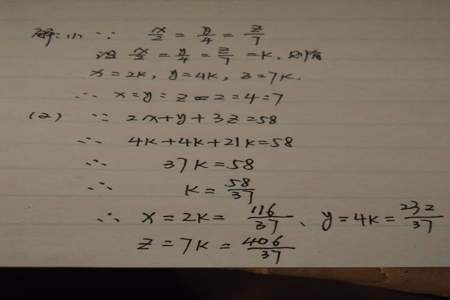 解:(1) ∵ x/2 = y/4 = z/7
设 x/2 = y/4 = z/7 = k. 则有
x=2k, y=4k, z=7k.
∴ x=y=z=2=4=7
(2) ∵ 2x+y+3z=58
∴ 4k+4k+21k=58
∴ 37k=58
∴ k=58/37
∴ x=2k=116/37、y=4k=232/37
z=7k=406/37